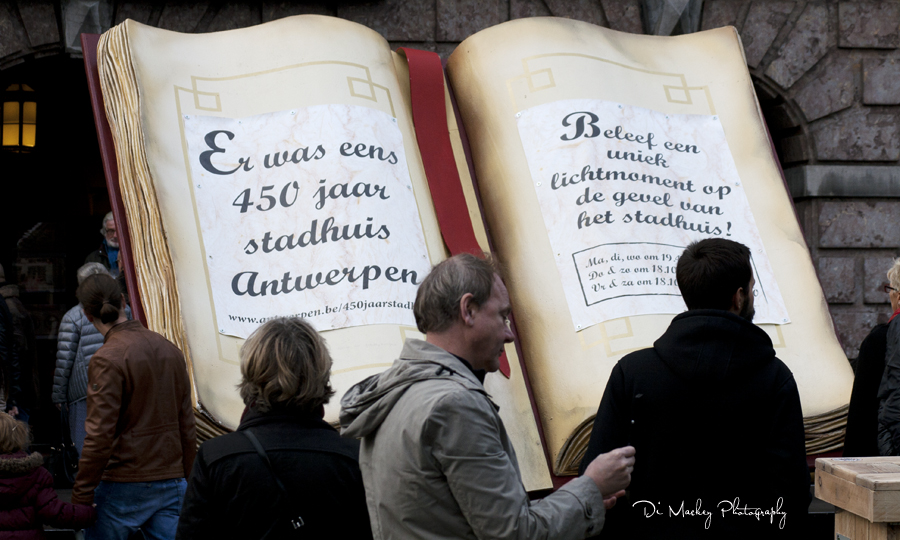 Er was eens
450 jaar
stadhuis
Antwerpen
www.antwerpen.be/450jaarstad
Beleef een
uniek
lichtmoment op
de gevel van
het stadhuis!
Ma, di, wo om 19.
Do & zo om 18.10
Vr & za om 18.10
Di Mackey Photography